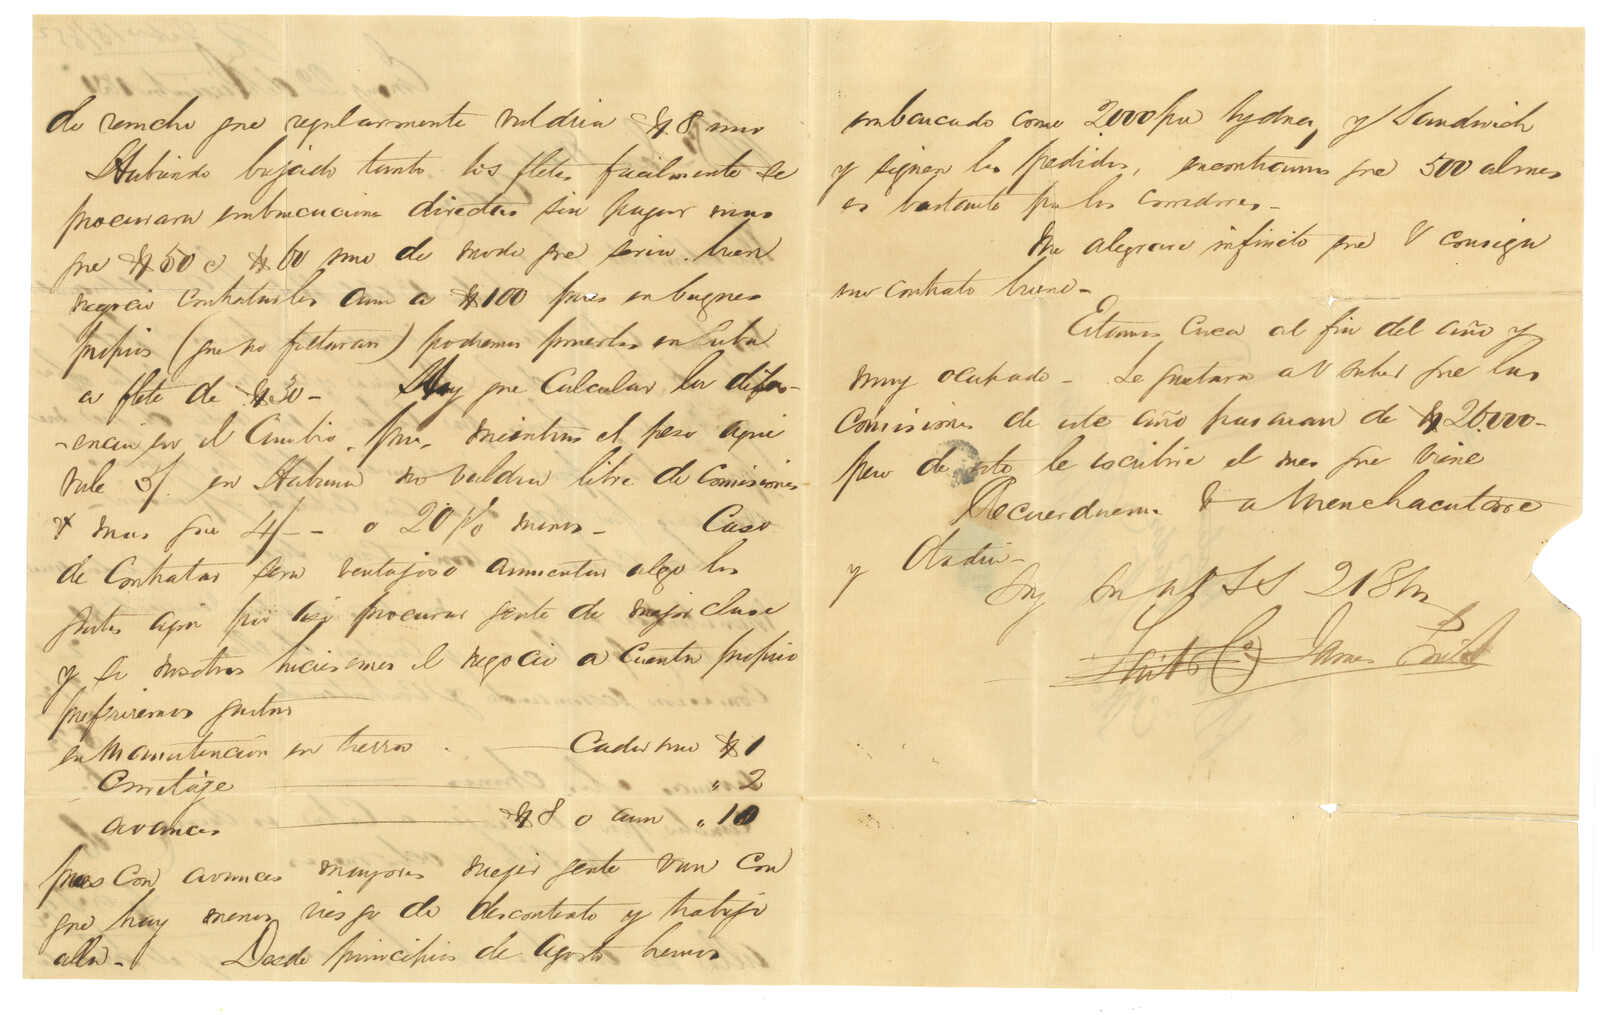 de rancho que regularmente valdria $8 uno
Habiendo bajado tanto los fletes facilmente se
procurara embarcacion directas sin pagar mas
que $50 a $60 uno de modo que seria buen
negocio contratarles aun a $100 pues en buques
propios (que no faltaran) podremos ponerles en Cuba
a flete de $30 – Hay que calcular la difer-
-encia en el cambio, pues, mientras el peso aqui
vale 5/ en Habana no valdra libre de Comisiones
& mas que 4/– – o 20 p% menos – Caso
de Contratar sera ventajoso aumentar algo los
gastos aqui por asi procurar gente de mejor clase
y si nosotros hiciesemos el negocio a cuenta propio
prefiriremos gastar
en Manutencion en tierra . — Cada uno $1
Corretaje — " 2
avances — $8 o aun " 10
pues con avances mayores mejor gente van con
que hay menos riesgo de descontento y trabajo
alla – Desde principios de Agosto hemos
embarcado como 2000 pa Sydney, y Sandwich
y siguen los pedidos, encontramos que 500 al mes
es bastante pa los corredores –
Me alegrare infinito que V consiga
un contrato bueno –
Estamos cerca al fin del año y
muy ocupado – Le gustara a V saber que las
Comisiones de este año pasaran de $26.000 –
pero de esto le escribire el mes que viene
Recuerdeme V a Menchacatorre
y Otadui –
Soy su at S S 2 1 8
Tait & Co James Tait